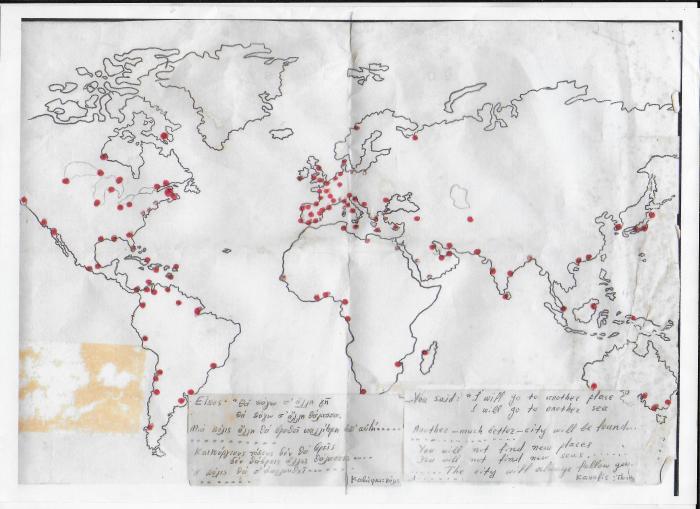 Είπες: "Θα πάγω σ' άλλη γη
θα πάγω σ' άλλη θάλασσα.
Μια πόλις άλλη θα βρεθεί καλλίτερη απ' αυτή......
Καινούργιους τόπους δεν θα βρεις
δεν θάβρεις άλλες θάλασσες.....
η πόλις θα σ' ακολουθεί.....
You said: "I will go to another place
I will go to another sea
Another-much better-city will be found...
You will not find new places
You will not find new seas.......
The city will always follow you.
Kavafis: